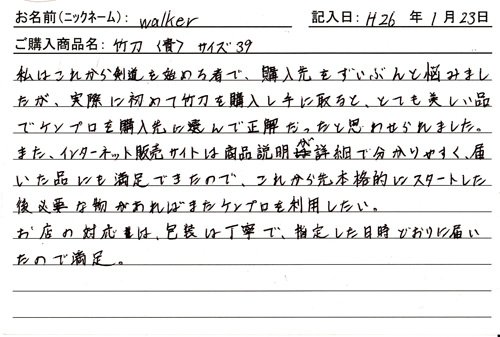 お名前(ニックネーム): walker 記入日: H26 年 1月 23日
ご購入商品名: 竹刀〈貴〉サイズ39
私はこれから剣道を始める者で、購入先をずいぶんと悩みまし
たが、実際に初めて竹刀を購入し手に取ると、とても美しい品
でケンプロを購入先に選んで正解だったと思わせられました。
また、インターネット販売サイトは商品説明が詳細で分かりやすく、届
いた品にも満足できたので、これから先本格的にスタートした
後必要な物があればまたケンプロを利用したい。
お店の対応は、包装は丁寧で、指定した日時どおりに届い
たので満足。